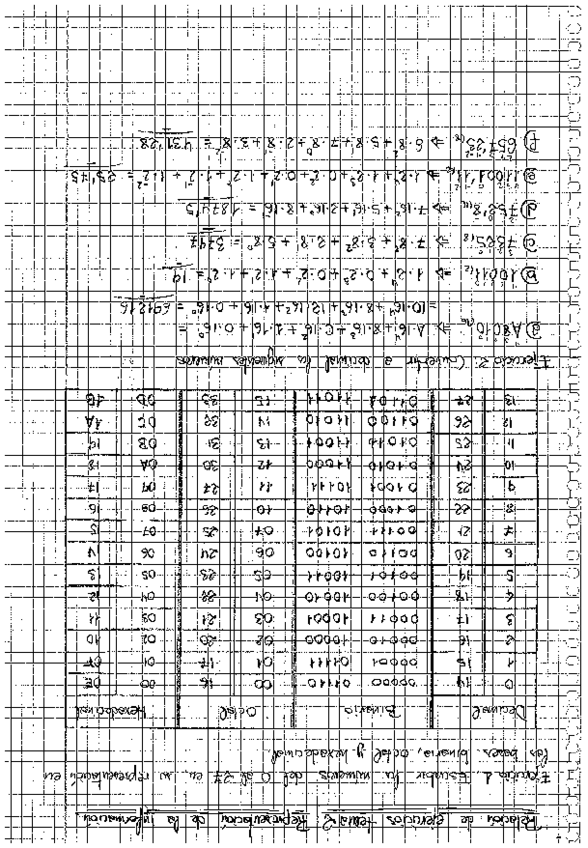 Relación de ejercicios tema 2. Representación de la información
Ejercicio 1. Escribir los números del 0 al 27 en su representación en
las bases binaria, octal y hexadecimal
Decimal Binario Octal Hexadecimal
0 14 00000 01110 00 16 00 0E
1 15 00001 01111 01 17 01 0F
2 16 00010 10000 02 20 02 10
3 17 00011 10001 03 21 03 11
4 18 00100 10010 04 22 04 12
5 19 00101 10011 05 23 05 13
6 20 00110 10100 06 24 06 14
7 21 00111 10101 07 25 07 15
8 22 01000 10110 10 26 08 16
9 23 01001 10111 11 27 09 17
10 24 01010 11000 12 30 0A 18
11 25 01011 11001 13 31 0B 19
12 26 01100 11010 14 32 0C 1A
13 27 01101 11011 15 33 0D 1B
Ejercicio 2. Convertir a decimal los siguientes números
a) A8C10(16 ⇒ A·16⁴+8·16³+C·16²+1·16¹+0·16⁰ =
=10·16⁴+8·16³+12·16²+1·16+0·16⁰ = 691216
b) 10011(2 ⇒ 1·2⁴+0·2³+0·2²+1·2¹+1·2⁰ = 19
c) 7325(8 ⇒ 7·8³+3·8²+2·8¹+5·8⁰ = 3797
d) 753'8(16 ⇒ 7·16²+5·16¹+3·16⁰+8·16⁻¹ = 1875'5
e) 11001'11(2 ⇒ 1·2⁴+1·2³+0·2²+0·2¹+1·2⁰+1·2⁻¹+1·2⁻² = 25'75
f) 657'23(8 ⇒ 6·8²+5·8¹+7·8⁰+2·8⁻¹+3·8⁻² = 431'28